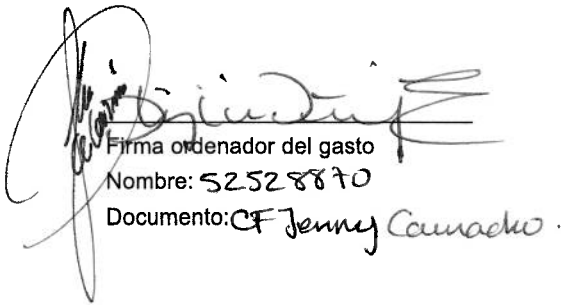 Firma ordenador del gasto
Nombre: 52528870
Documento: CF Jenny Camacho.